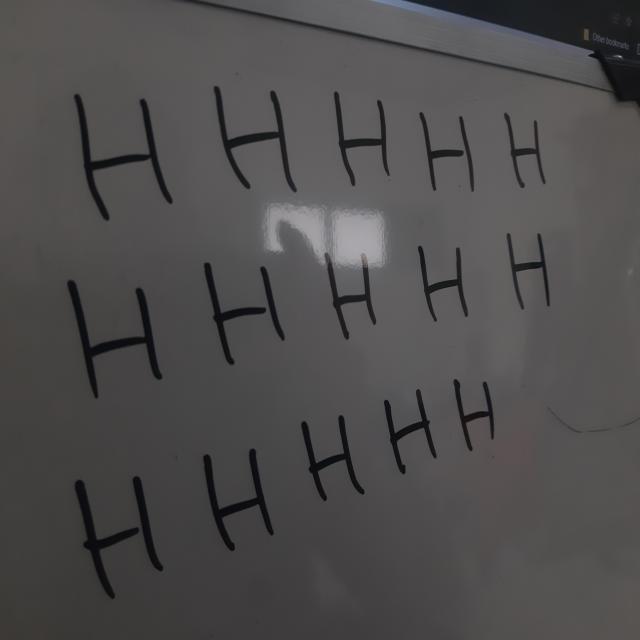 Other bookmarks
H H H H H
H H H H H
H H H H H